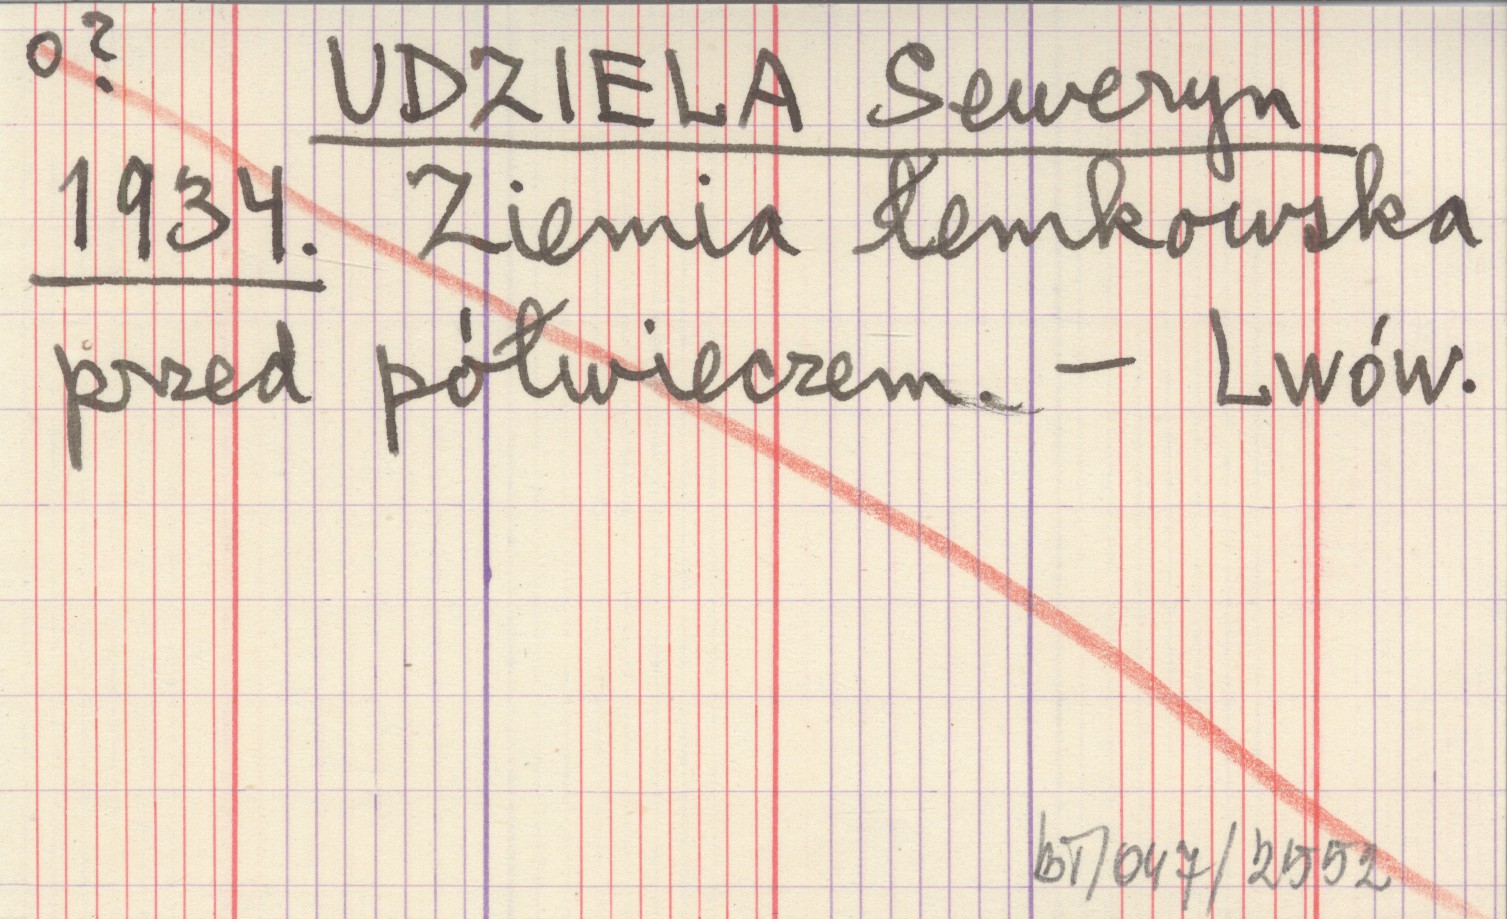 o?
UDZIELA Seweryn
1934. Ziemia łemkowska
przed półwieczem. – Lwów.
bT/047/2552